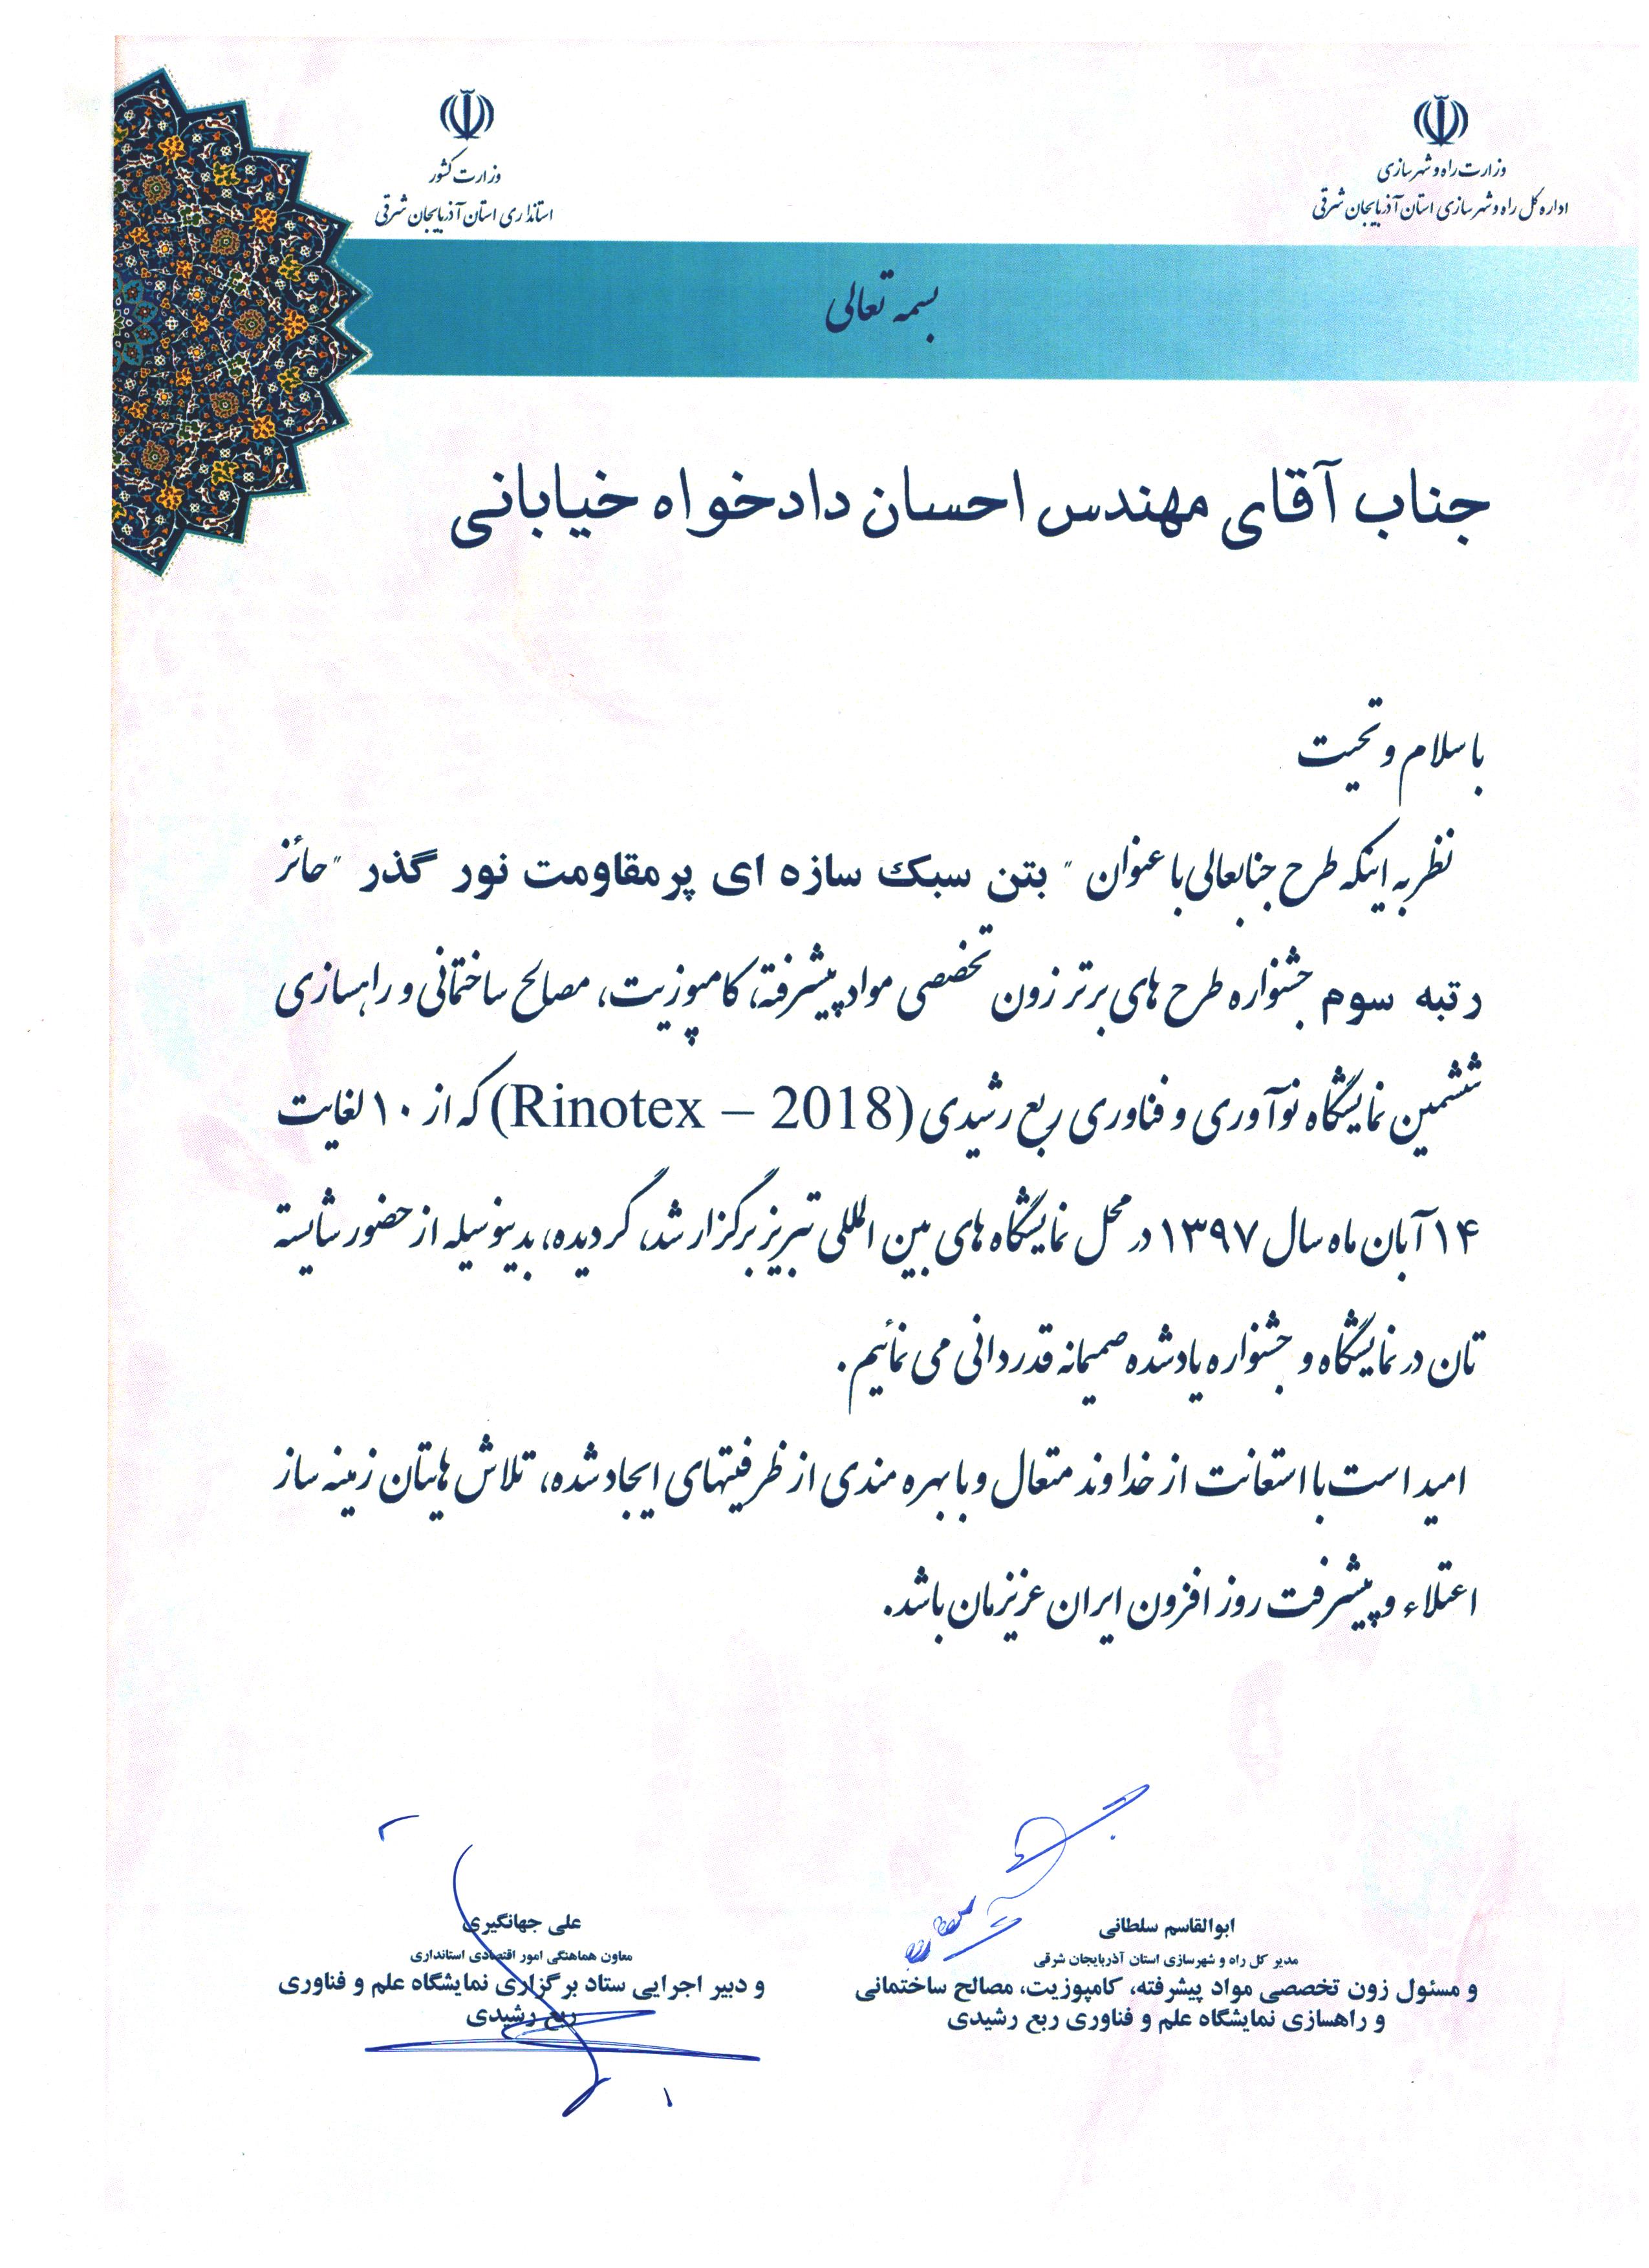 وزارت راه و شهرسازی
اداره کل راه و شهرسازی استان آذربایجان شرقی
وزارت کشور
استانداری استان آذربایجان شرقی
بسمه تعالی
جناب آقای مهندس احسان دادخواه خیابانی
با سلام و تحیت
نظر به اینکه طرح جنابعالی با عنوان " بتن سبک سازه ای پرمقاومت نور گذر " حائز
رتبه سوم جشنواره طرح های برتر زون تخصصی مواد پیشرفته، کامپوزیت، مصالح ساختمانی و راهسازی
ششمین نمایشگاه نوآوری و فناوری ربع رشیدی (Rinotex – 2018) که از ۱۰ لغایت
۱۴ آبان ماه سال ۱۳۹۷ در محل نمایشگاه های بین المللی تبریز برگزار شد، گردیده، بدینوسیله از حضور شایسته
تان در نمایشگاه و جشنواره یادشده صمیمانه قدردانی می نمائیم.
امید است با استعانت از خداوند متعال و با بهره مندی از ظرفیتهای ایجاد شده، تلاش هایتان زمینه ساز
اعتلاء و پیشرفت روز افزون ایران عزیزمان باشد.
ابوالقاسم سلطانی
مدیر کل راه و شهرسازی استان آذربایجان شرقی
و مسئول زون تخصصی مواد پیشرفته، کامپوزیت، مصالح ساختمانی
و راهسازی نمایشگاه علم و فناوری ربع رشیدی
علی جهانگیری
معاون هماهنگی امور اقتصادی استانداری
و دبیر اجرایی ستاد برگزاری نمایشگاه علم و فناوری
ربع رشیدی